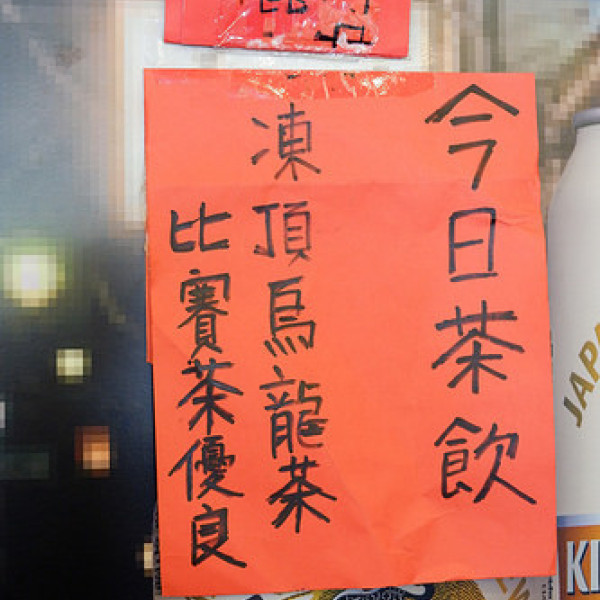 今日茶飲
凍頂烏龍茶
比賽茶優良
JAPA
KI